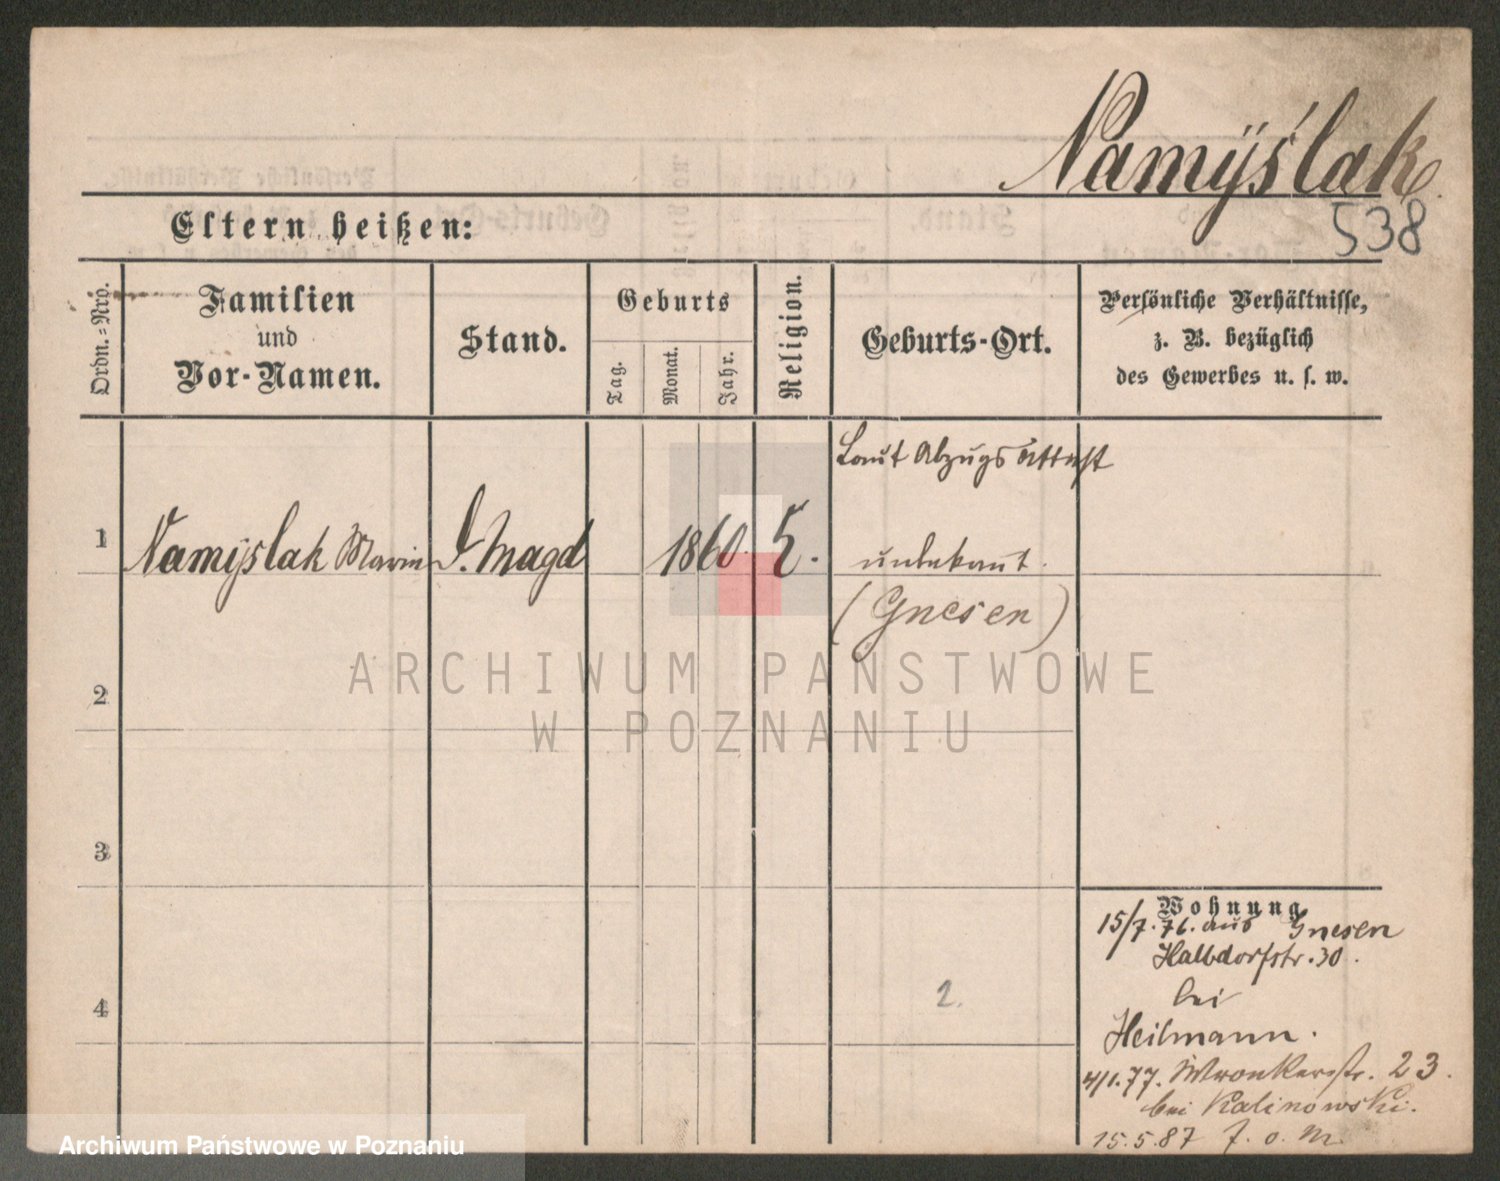 Namÿślak
538
Eltern heißen:
Ordn.=Nro.
Familien
und
Vor-Namen.
Stand.
Geburts
Tag.
Monat.
Jahr.
Religion.
Geburts-Ort.
Persönliche Verhältnisse,
z. B. bezüglich
des Gewerbes u. s. w.
Laut Abzugs Attest
1 Namÿslak Marie D. Magd 1860. unbekant.
(Gnesen)
2
3
4
2.
Wohnung
15/7.76. aus Gnesen
Halbdorfstr. 30.
bei
Heilmann.
4/1.77. Wronkerstr. 23.
bei Kalinowski.
15.5.87 f. o. M.
ARCHIWUM PAŃSTWOWE
W POZNANIU
Archiwum Państwowe w Poznaniu